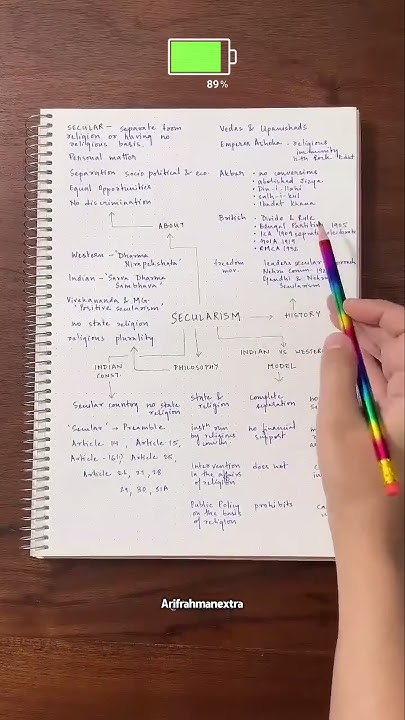 89%
SECULAR - separate from
religion or having no
religious basis.
Personal matter
Separation socio political & eco.
Equal Opportunities
No discrimination
ABOUT
Western - 'Dharma
Nirapekshata'
Indian - 'Sarva Dharma
Sambhava'
Vivekananda & MG-
'Positive secularism'
no state religion
religious plurality
Vedas & Upanishads
Emperor Ashoka - religious
12th Rock Edict
Akbar - • no conversions
• abolished Jizya
• Din-i Ilahi
• sulh-i-kul
• Ibadat khana
British - • Divide & Rule
• Bengal Partition 1905
• ICA 1909 separate electorate
• 1919
• 1932
freedom
mov.
leaders secular
Nehru Comm 192
Gandhi & Nehru
Secularism
SECULARISM
HISTORY
INDIAN
CONST.
PHILOSOPHY
INDIAN VS WESTERN
MODEL
Secular country no state
religion
'Secular' - Preamble
Article 14, Article 15,
Article - 16(1) Article 25,
Article 26, 27, 28
29, 30, 51A
state &
religion
complete
separation
instn run
by religious
no financial
support
Intervention
in the affairs
of religion
does not
Public Policy
on the basis
of religion
prohibits
Arifrahmanextra